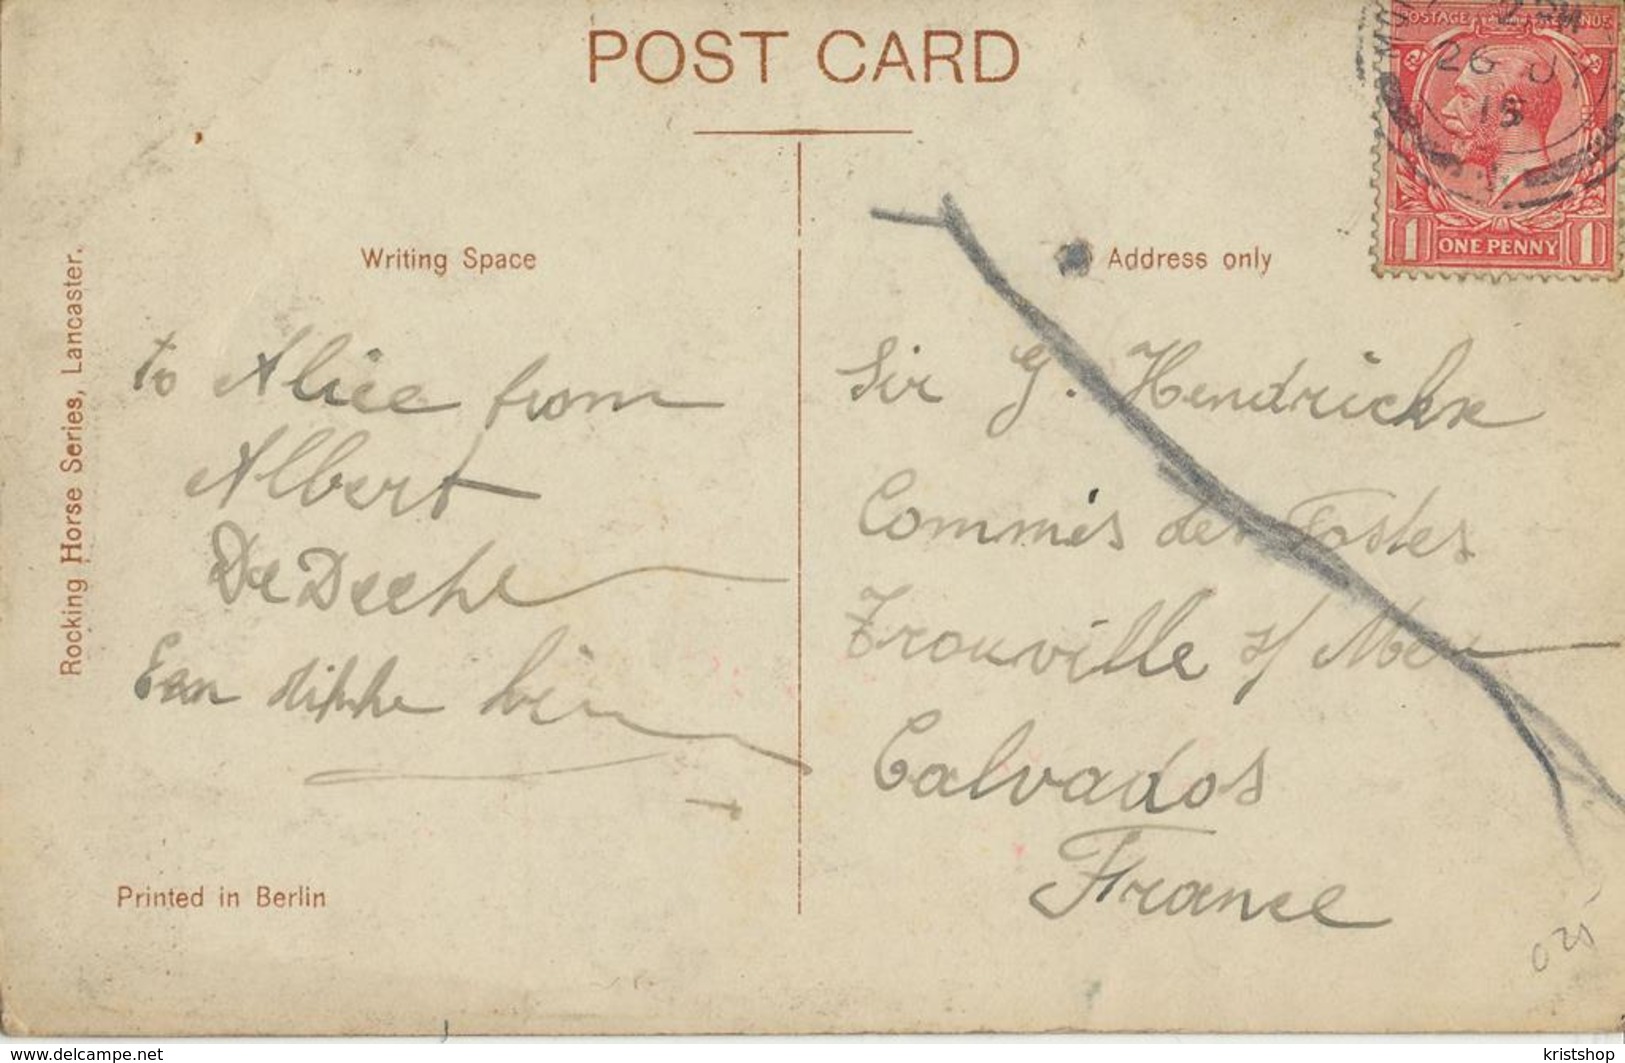 POST CARD
POSTAGE REVENUE
26 JY
15
1 ONE PENNY 1
Writing Space
Address only
Rocking Horse Series, Lancaster.
to Alice from
Albert
Een dikke
Printed in Berlin
Sir G. Hendrickx
Commis des Postes
Trouville s/ Mer
Calvados
France
www.delcampe.net
kristshop